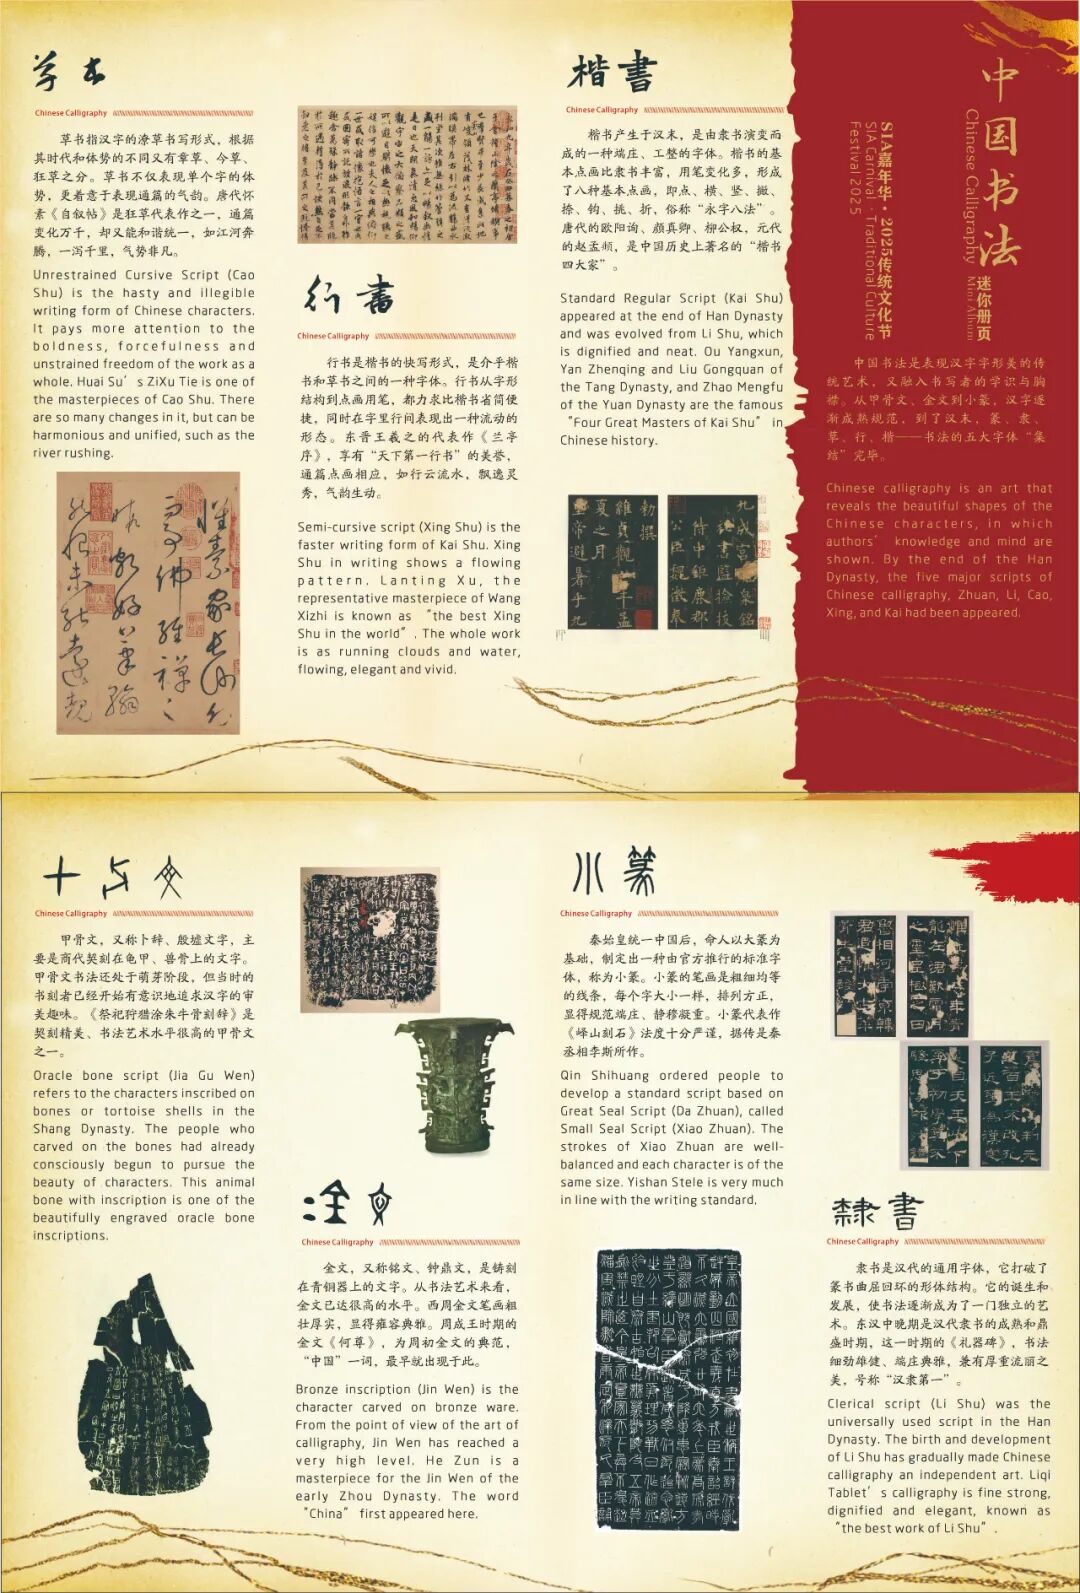 草书
Chinese Calligraphy
草书指汉字的潦草书写形式，根据
其时代和体势的不同又有章草、今草、
狂草之分。草书不仅表现单个字的体
势，更着意于表现通篇的气韵。唐代怀
素《自叙帖》是狂草代表作之一，通篇
变化万千，却又能和谐统一，如江河奔
腾，一泻千里，气势非凡。
Unrestrained Cursive Script (Cao
Shu) is the hasty and illegible
writing form of Chinese characters.
It pays more attention to the
boldness, forcefulness and
unstrained freedom of the work as a
whole. Huai Su’s ZiXu Tie is one of
the masterpieces of Cao Shu. There
are so many changes in it, but can be
harmonious and unified, such as the
river rushing.
行書
Chinese Calligraphy
行书是楷书的快写形式，是介乎楷
书和草书之间的一种字体。行书从字形
结构到点画用笔，都力求比楷书省简便
捷，同时在字里行间表现出一种流动的
形态。东晋王羲之的代表作《兰亭
序》，享有“天下第一行书”的美誉，
通篇点画相应，如行云流水，飘逸灵
秀，气韵生动。
Semi-cursive script (Xing Shu) is the
faster writing form of Kai Shu. Xing
Shu in writing shows a flowing
pattern. Lanting Xu, the
representative masterpiece of Wang
Xizhi is known as “the best Xing
Shu in the world”. The whole work
is as running clouds and water,
flowing, elegant and vivid.
楷書
Chinese Calligraphy
楷书产生于汉末，是由隶书演变而
成的一种端庄、工整的字体。楷书的基
本点画比隶书丰富，用笔变化多，形成
了八种基本点画，即点、横、竖、撇、
捺、钩、挑、折，俗称“永字八法”。
唐代的欧阳询、颜真卿、柳公权，元代
的赵孟頫，是中国历史上著名的“楷书
四大家”。
Standard Regular Script (Kai Shu)
appeared at the end of Han Dynasty
and was evolved from Li Shu, which
is dignified and neat. Ou Yangxun,
Yan Zhenqing and Liu Gongquan of
the Tang Dynasty, and Zhao Mengfu
of the Yuan Dynasty are the famous
“Four Great Masters of Kai Shu” in
Chinese history.
九成宮醴泉銘
秘書監檢校
侍中鉅鹿郡
公臣魏徵奉
勅撰
維貞觀六年孟
夏之月
皇帝避暑乎九
中国书法
Chinese Calligraphy
迷你册页
Mini Album
SIA嘉年华·2025传统文化节
SIA Carnival · Traditional Culture
Festival 2025
中国书法是表现汉字字形美的传
统艺术，又融入书写者的学识与胸
襟。从甲骨文、金文到小篆，汉字逐
渐成熟规范，到了汉末，篆、隶、
草、行、楷——书法的五大字体“集
结”完毕。
Chinese calligraphy is an art that
reveals the beautiful shapes of the
Chinese characters, in which
authors’ knowledge and mind are
shown. By the end of the Han
Dynasty, the five major scripts of
Chinese calligraphy, Zhuan, Li, Cao,
Xing, and Kai had been appeared.
甲骨文
Chinese Calligraphy
甲骨文，又称卜辞、殷墟文字，主
要是商代契刻在龟甲、兽骨上的文字。
甲骨文书法还处于萌芽阶段，但当时的
书刻者已经开始有意识地追求汉字的审
美趣味。《祭祀狩猎涂朱牛骨刻辞》是
契刻精美、书法艺术水平很高的甲骨文
之一。
Oracle bone script (Jia Gu Wen)
refers to the characters inscribed on
bones or tortoise shells in the
Shang Dynasty. The people who
carved on the bones had already
consciously begun to pursue the
beauty of characters. This animal
bone with inscription is one of the
beautifully engraved oracle bone
inscriptions.
金文
Chinese Calligraphy
金文，又称铭文、钟鼎文，是铸刻
在青铜器上的文字。从书法艺术来看，
金文已达很高的水平。西周金文笔画粗
壮厚实，显得雍容典雅。周成王时期的
金文《何尊》，为周初金文的典范，
“中国”一词，最早就出现于此。
Bronze inscription (Jin Wen) is the
character carved on bronze ware.
From the point of view of the art of
calligraphy, Jin Wen has reached a
very high level. He Zun is a
masterpiece for the Jin Wen of the
early Zhou Dynasty. The word
“China” first appeared here.
小篆
Chinese Calligraphy
秦始皇统一中国后，命人以大篆为
基础，制定出一种由官方推行的标准字
体，称为小篆。小篆的笔画是粗细均等
的线条，每个字大小一样，排列方正，
显得规范端庄、静穆凝重。小篆代表作
《峄山刻石》法度十分严谨，据传是秦
丞相李斯所作。
Qin Shihuang ordered people to
develop a standard script based on
Great Seal Script (Da Zhuan), called
Small Seal Script (Xiao Zhuan). The
strokes of Xiao Zhuan are well-
balanced and each character is of the
same size. Yishan Stele is very much
in line with the writing standard.
隸書
Chinese Calligraphy
隶书是汉代的通用字体，它打破了
篆书曲屈回环的形体结构。它的诞生和
发展，使书法逐渐成为了一门独立的艺
术。东汉中晚期是汉代隶书的成熟和鼎
盛时期，这一时期的《礼器碑》，书法
细劲雄健、端庄典雅，兼有厚重流丽之
美，号称“汉隶第一”。
Clerical script (Li Shu) was the
universally used script in the Han
Dynasty. The birth and development
of Li Shu has gradually made Chinese
calligraphy an independent art. Liqi
Tablet’s calligraphy is fine strong,
dignified and elegant, known as
“the best work of Li Shu”.